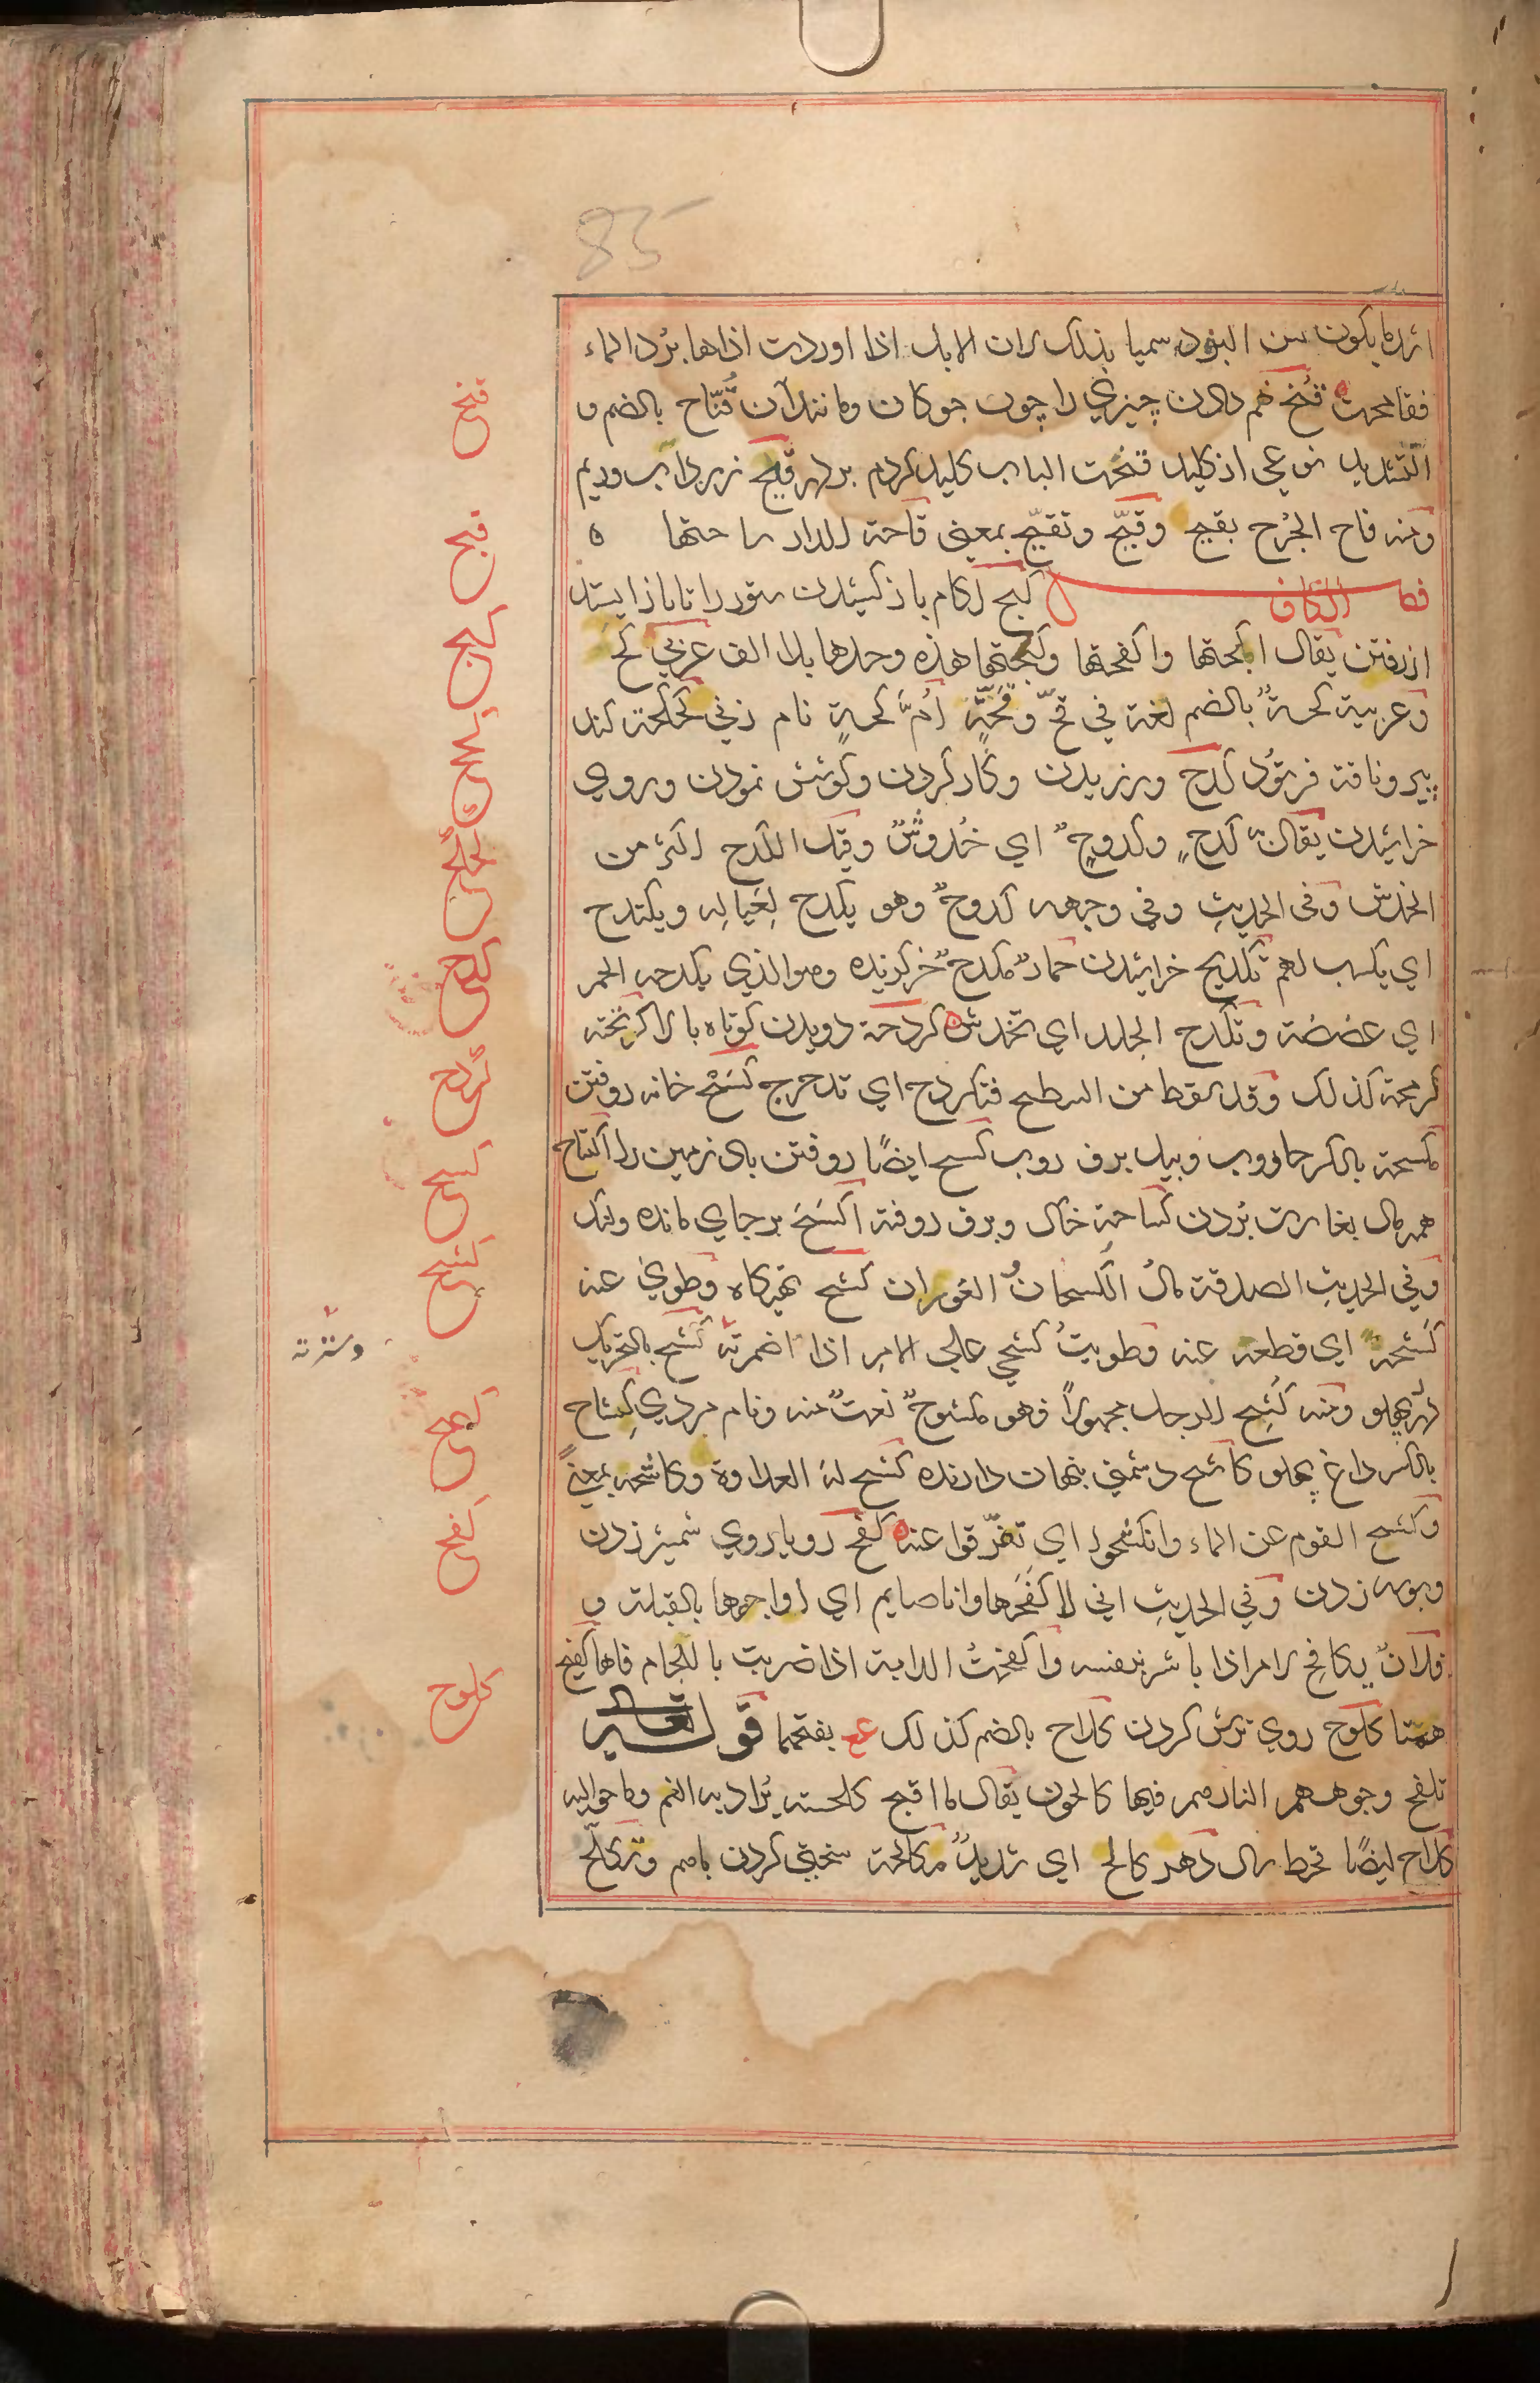 85
اشد ما يكون من البرد سميا بذلك لان الابل اذا اوردت اذاها برد الماء
فقامحت قنح خم دادن چيزي را چون چوكان و مانند آن قُنّاح بالضم و
التشديد نوعي از كليد قنحت الباب كليد كردم بر در قيح زرداب و ريم
ومنه قاح الجرح يقيح وقيّح وتقيّح بمعنى قاحة الدار ساحتها ه
فصل الكاف كبح لكام باز كشيدن ستور را تا باز ايستد
از رفتن يقال اكبحتها واكفحتها وكبحتها هذه وحدها بلا الف عربي كحّ
وعربية كحة بالضم لغة في قحّ وقحّة امّ كحة نام زني كحكحة كند
پير و ناقة فرتوت كدح ورزيدن و كار كردن و كوشش نمودن و روي
خراشيدن يقال به كدح وكدوح اي خدوش وقيل الكدح اكثر من
الخدش وفي الحديث وفي وجهه كدوح وهو يكدح لعياله ويكتدح
اي يكسب لهم تكديح خراشيدن حمار مكدح خر گزنده وهو الذي يكدحه الحمر
اي عضضه وتكدح الجلد اي تخدش كردحة دويدن كوتاه بالا
كرمحة كذلك وقد سقط من السطح فتكردح اي تدحرج كسح خانه روفتن
مكسحة بالكسر جاروب و بيل برف روب كسح ايضًا روفتن باد زمين را اكتساح
همه مال بغارت بردن كساحة خاك و برف روفته اكسح بر جاي مانده و لنك
وفي الحديث الصدقة مال الكسحان العوران كشح تهيكاه وطوي عنه
كشحه اي قطعه عنه وطويت كشحي علي الامر اذا اضمرته كشح بالتحريك
درد پهلو ومنه كشح الرجل مجهولاً فهو مكشوح نعت منه و نام مردي كشاح
بالكسر داغ پهلو كاشح دشمني پنهان دارنده كشح له العداوة وكاشحه بمعنىً
وكشح القوم عن الماء وانكشحوا اي تفرّقوا عنه كفح روياروي شمشير زدن
و بوسه زدن وفي الحديث اني لاكفحها وانا صايم اي اواجهها بالقبلة و
فلان يكافح الامر اذا باشر بنفسه واكفحت الدابة اذا ضربت باللجام فاها كفيح
همتا كلوح روي ترش كردن كلاح بالضم كذلك ع بفتحهما قوله تعالى
تلفح وجوههم النار وهم فيها كالحون يقال ما اقبح كلحته يراد به الفم وما حواليه
كلاح ايضًا قحط سال دهر كالح اي شديد مكالحة سختي كردن باهم وتكلّح
قنح
قيح
كبح
كدح
كردح
كسح
كشح
كفح
كلوح
وسترته